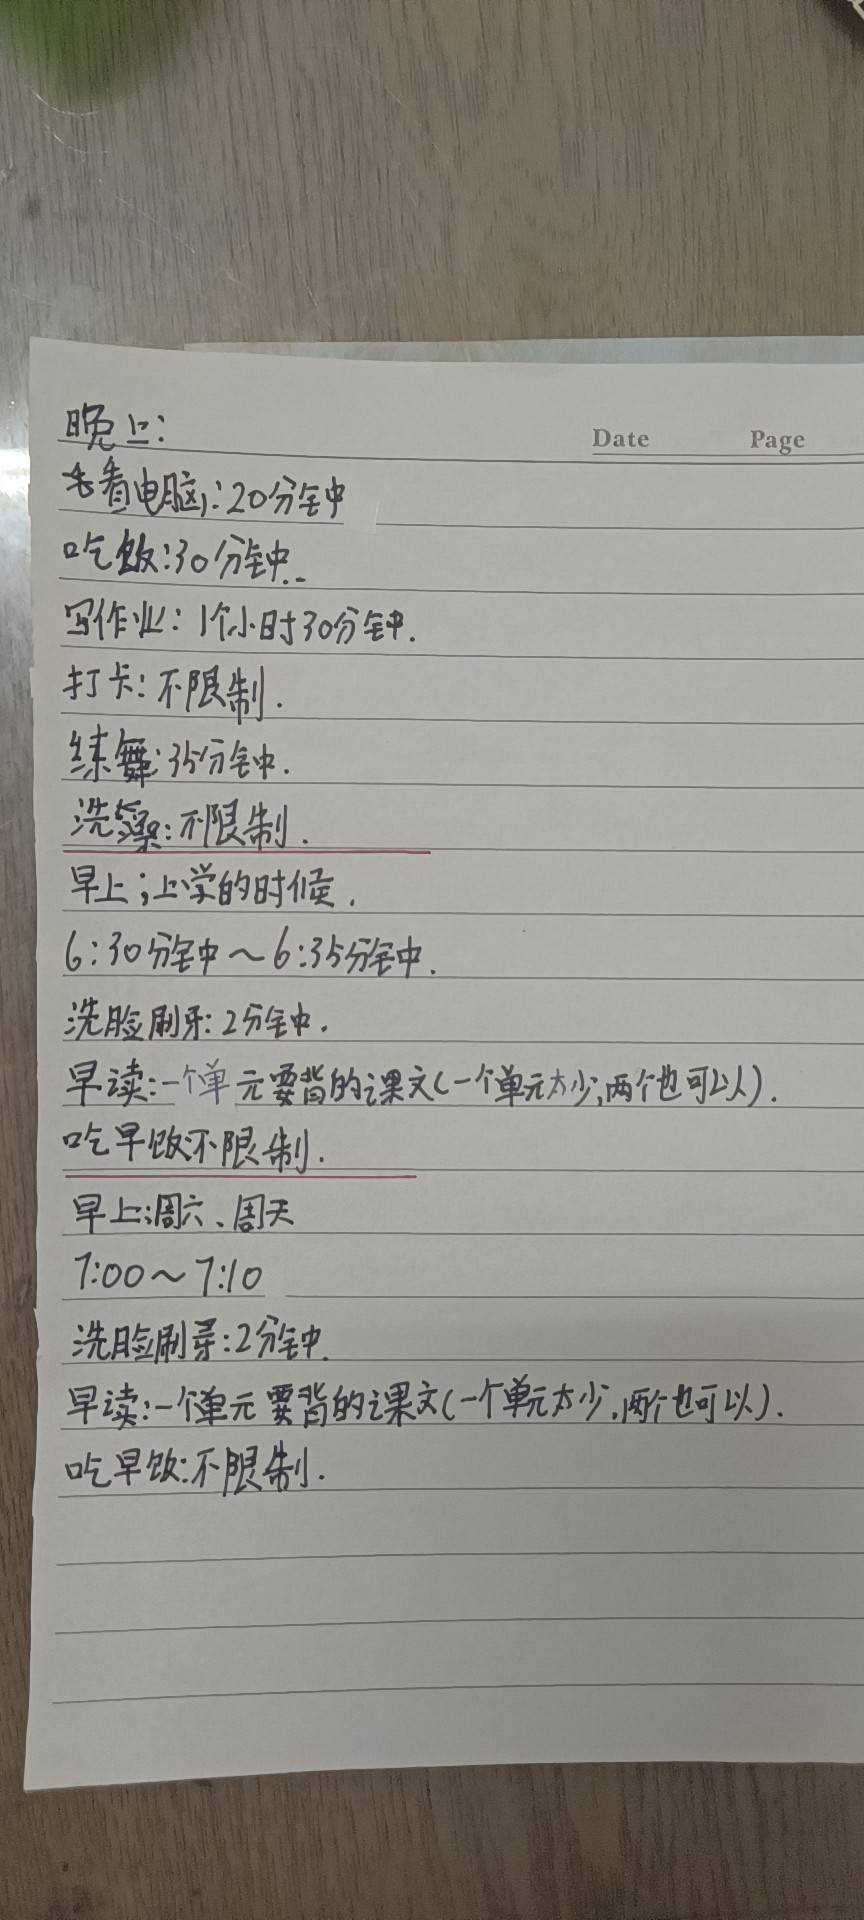 晚上:
Date Page
看电脑:20分钟
吃饭:30分钟..
写作业:1个小时30分钟.
打卡:不限制.
练舞:35分钟.
洗澡:不限制.
早上;上学的时候.
6:30分钟~6:35分钟.
洗脸刷牙:2分钟.
早读:一个单元要背的课文(一个单元太少,两个也可以).
吃早饭:不限制.
早上:周六、周天
7:00~7:10
洗脸刷牙:2分钟.
早读:一个单元要背的课文(一个单元太少,两个也可以).
吃早饭:不限制.